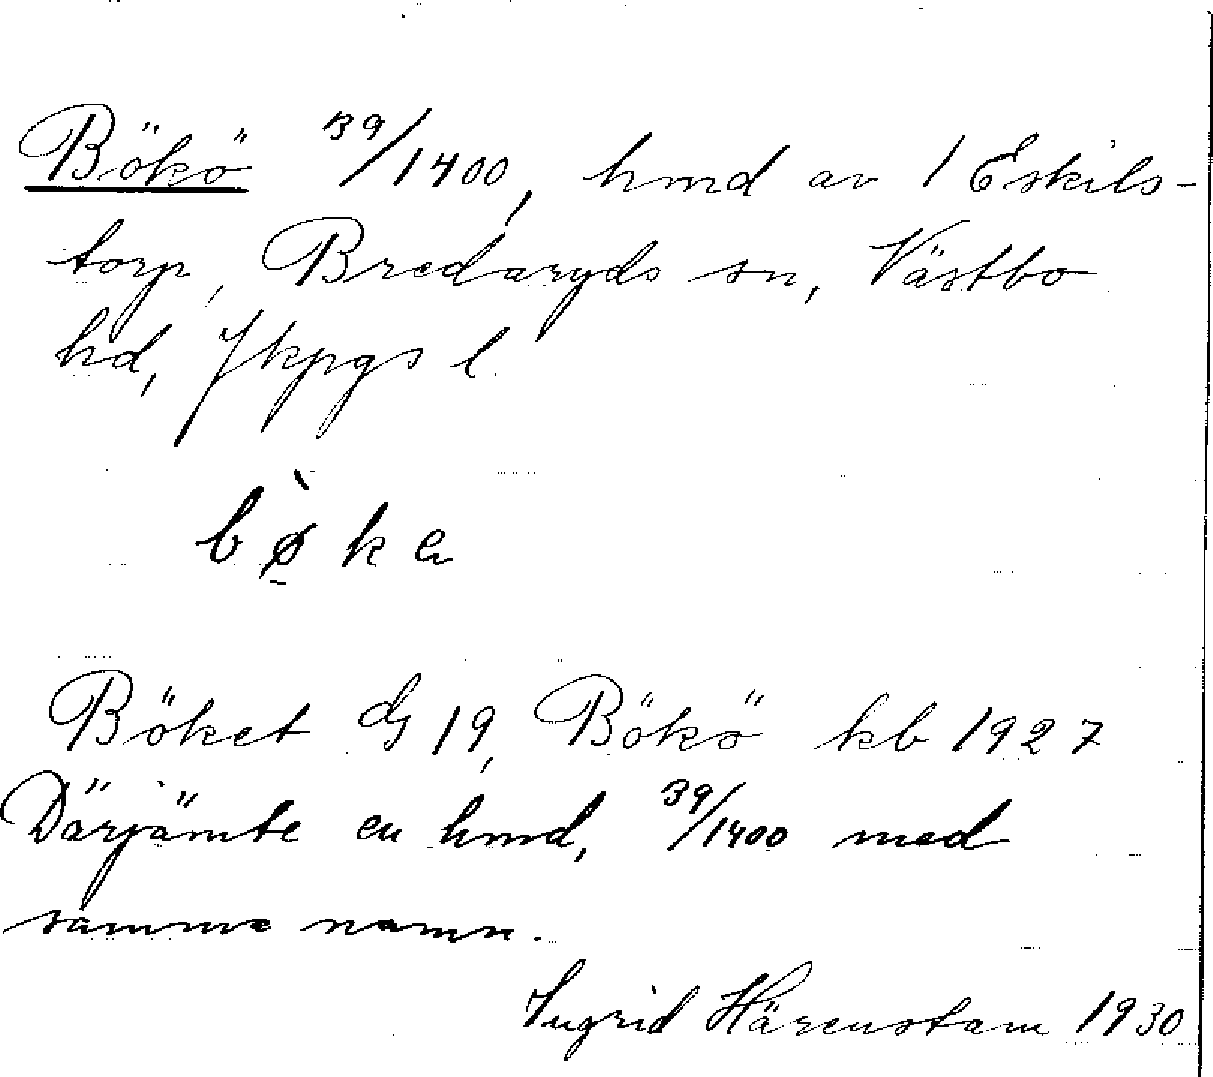 Bökö 39/1400, hmd av 1 Eskils-
torp, Bredaryds sn, Västbo
hd, Jkpgs l.
bø̀ka
Böket G 19, Bökö kb 1927
Därjämte en hmd, 39/1400 med
samma namn.
Ingrid Härenstam 1930